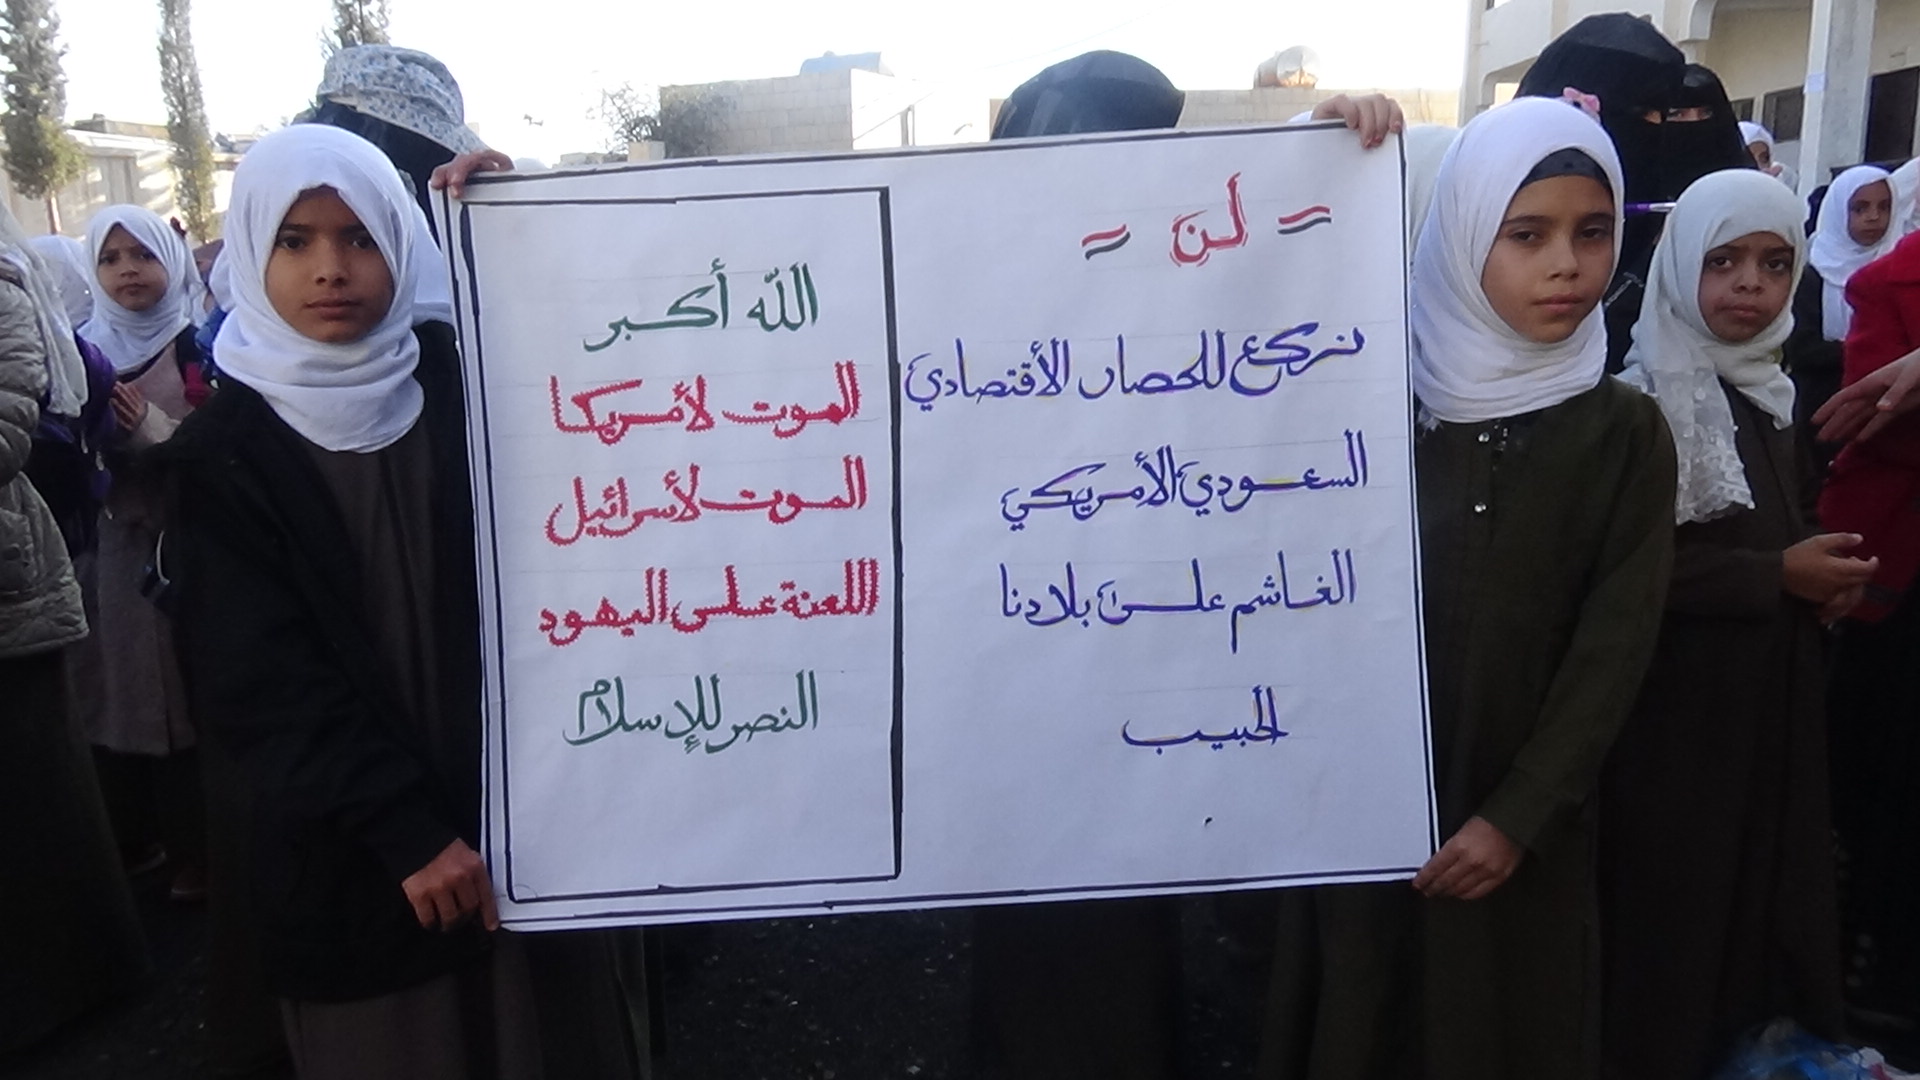 = لن =
نركع للحصار الأقتصادي
السعودي الأمريكي
الغاشم على بلادنا
الحبيب
الله أكبر
الموت لأمريكا
الموت لأسرائيل
اللعنة على اليهود
النصر للإسلام